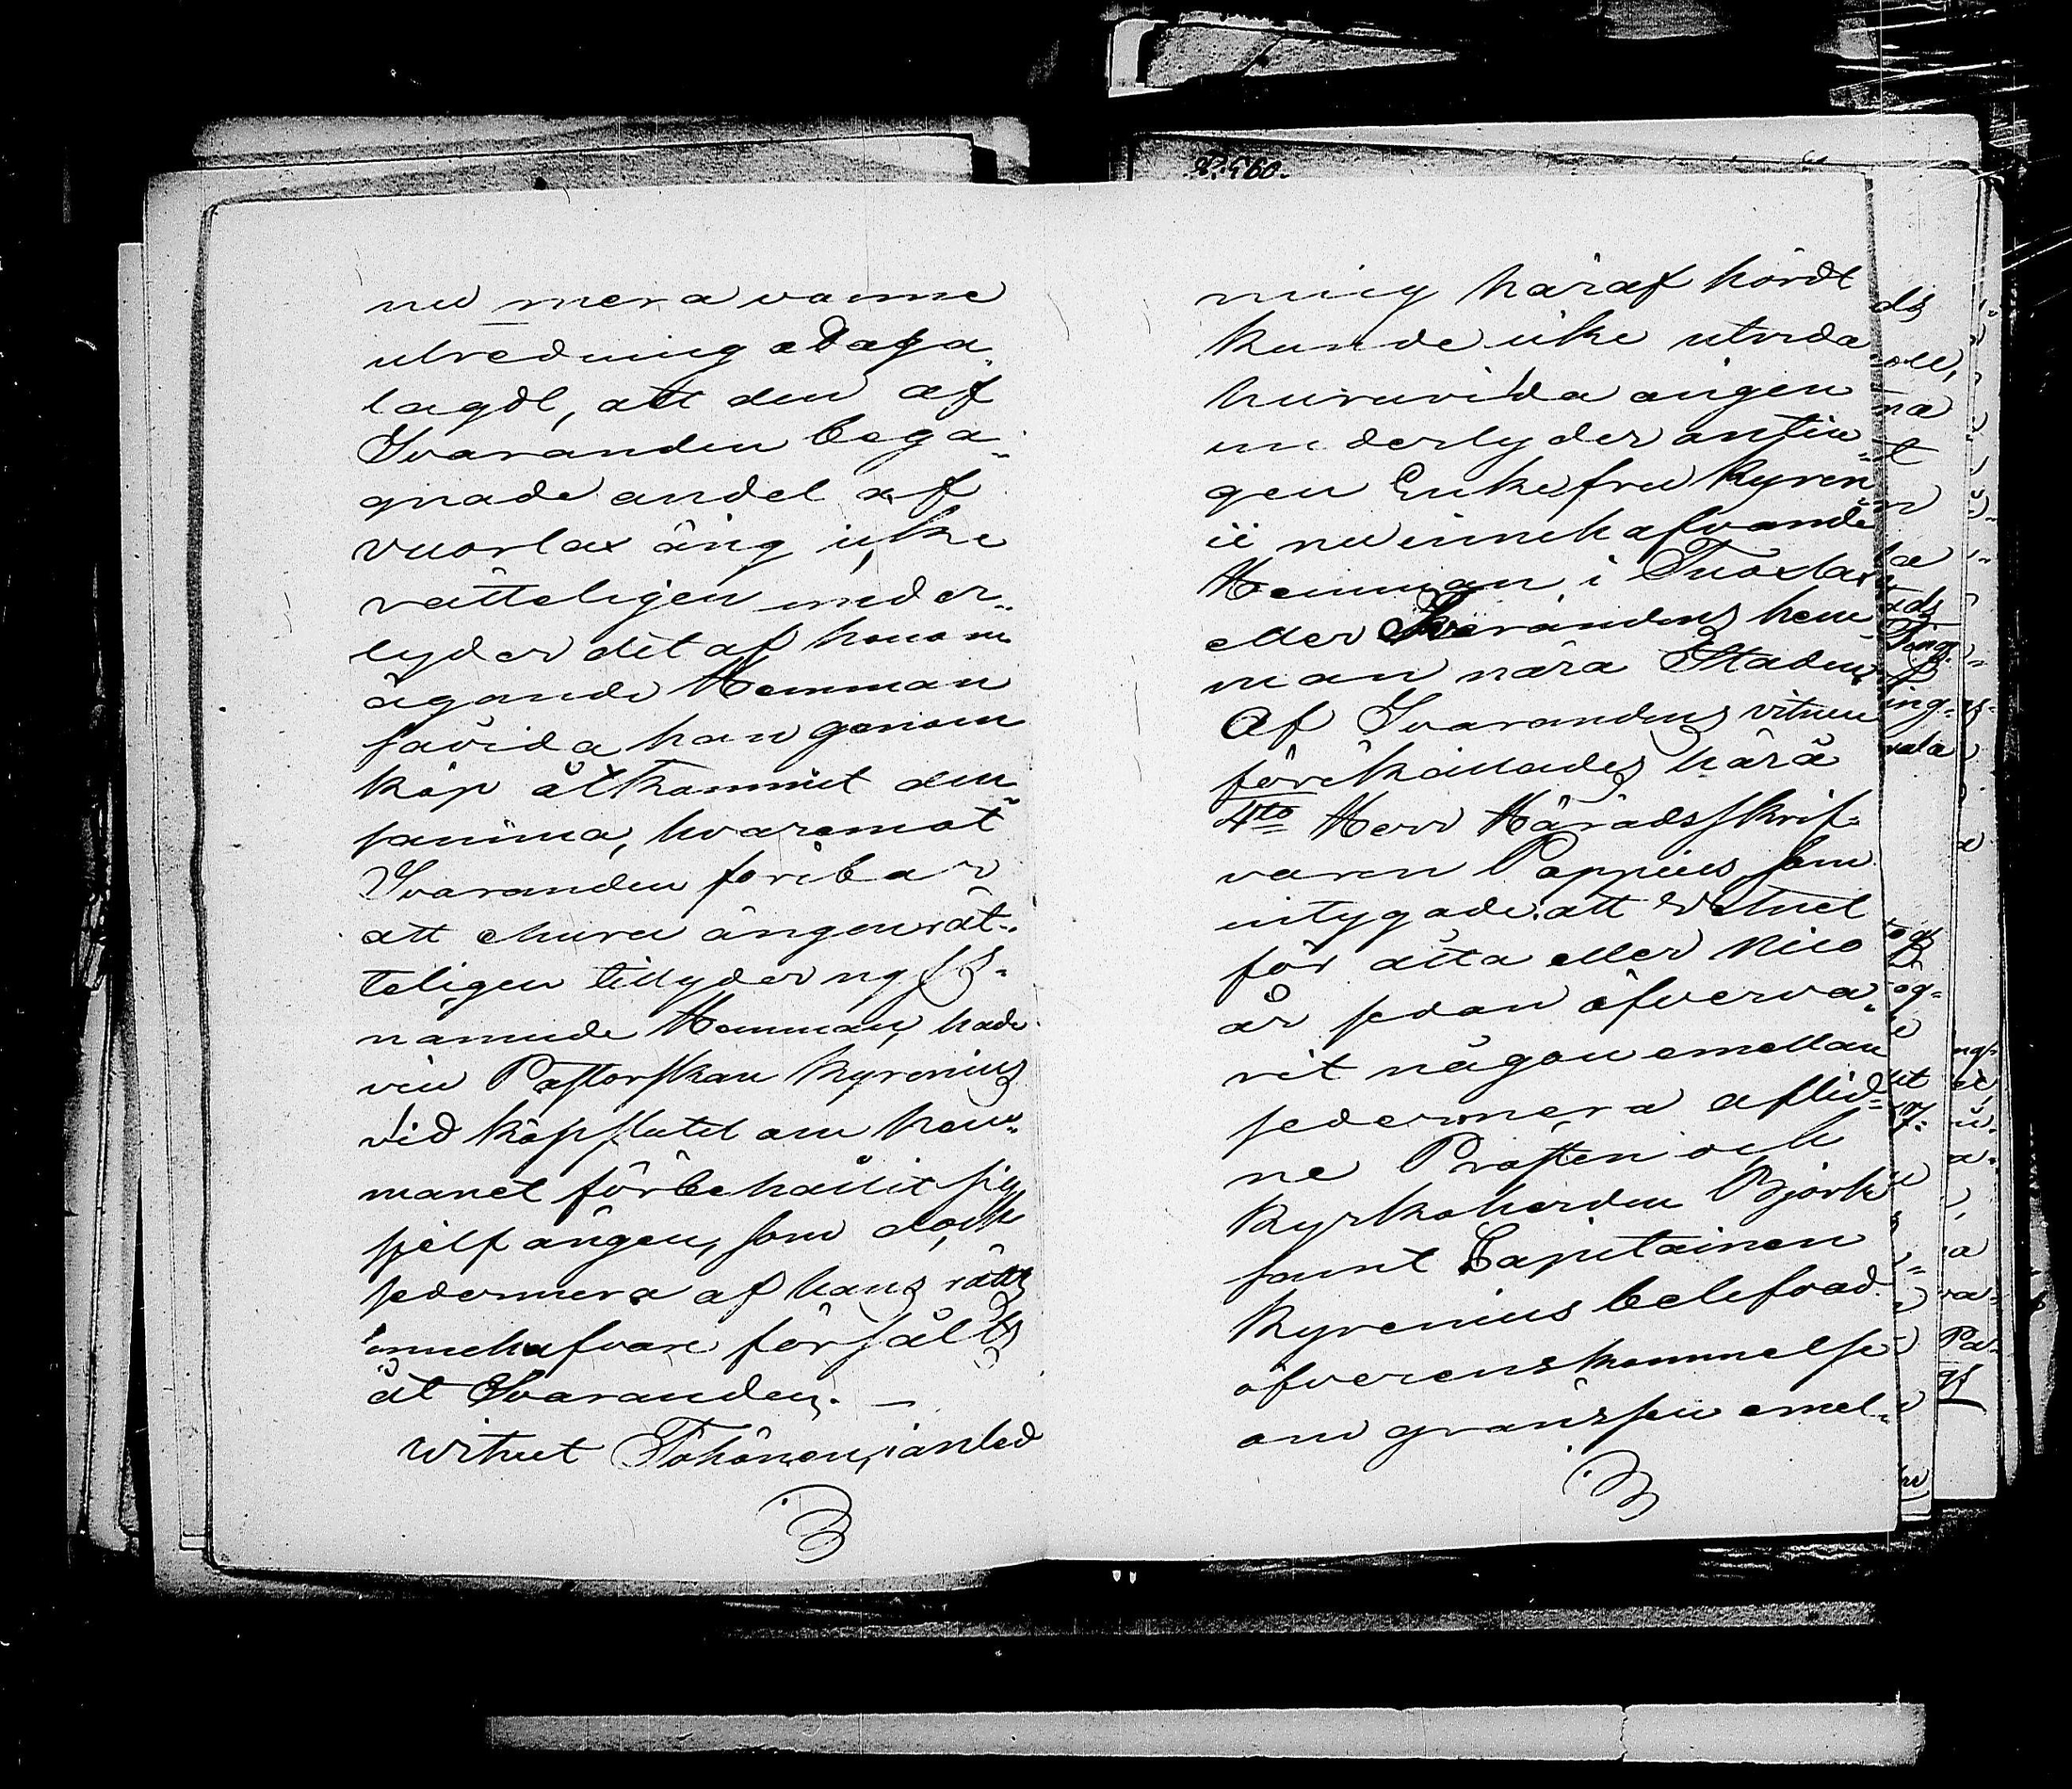 nu mera vanne
utredning adaga„
lagdt, att den af
Svaranden bega„
gnade andel af
Vuorlax äng icke
rätteligen under„
lyder det af honom
ägande Hemman
såvida han genom
köp åtkommit den„
samma, hvaremot
Svaranden föribar
att ehuru ängen rät„
teligen tillyder nyss„
nämnde Hemman, hade
Pastorskan Kyrenius
vid köpslutet om hem„
manet förbehållit sig
sjelf ängen, som dock
sedermera af hans rätts
innehafvare försålts
åt Svaranden. —
Witnet Töhönen, i anled
ning häraf hördt
kunde icke utreda
huruvida ängen
underlyder antin„
gen Enkefru Kyren„
ii nu innehafvande
Hemman i Tuoxlax
eller Svarandens hem„
man nära Staden.
Af Svarandens vitnen
förehållades härå
4to Herr Häradsskrif„
varen Poppius, som
intygade att Vitnet
för åtta eller nio
år sedan öfverva„
rit någon emellan
sedermera aflid„
ne Prosten och
Kyrkoherden Björk
samt Capitainen
Kyrenius belefvad
öfverenskommelse
om gränsen emel„
P. 560.